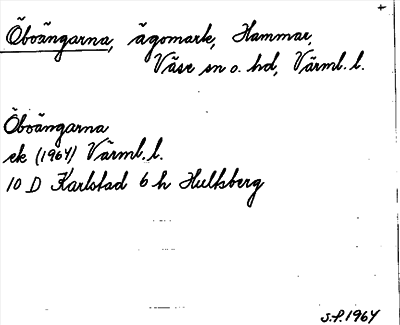 +
Öboängarna, ägomark, Hammar,
Väse sn o. hd, Värml. l.
Öboängarna
ek (1964) Värml. l.
10 D Karlstad 6 h Hultsberg
S.P. 1964